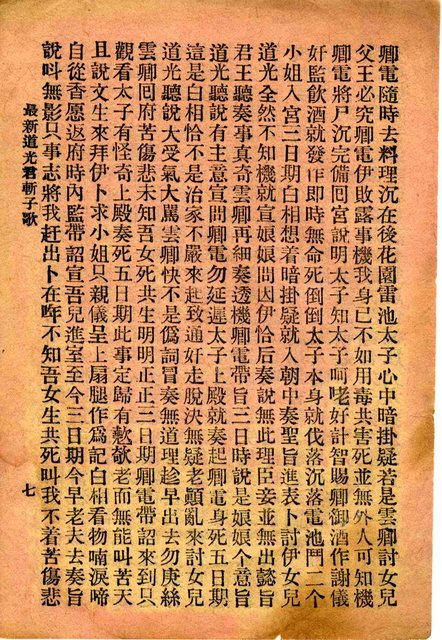 卿電隨時去料理沉在後花園雷池太子心中暗掛疑若是雲卿討女兒
父王必究卿電伊敗露事機我身已不如用毒共害死並無外人可知機
卿電將尸沉完備回宮說明太子知太子呵咾好計智賜卿御酒作謝儀
奸監飲酒就發作即時無命死倒倒太子本身就伐落沉落電池鬥二个
小姐入宮三日期白相想着暗掛疑就入朝中奏聖旨進表卜討伊女兒
道光全然不知機就宣娘娘問因伊恰后奏說無此理臣妾並無出懿旨
君王聽奏事真奇雲卿再細奏透機卿電帶旨三日時說是娘娘个意旨
道光聽說有主意宣問卿電勿延遲太子上殿就奏起卿電身死五日期
這是白相恰不是治家不嚴來赴致通奸走脫決無疑老顛亂來討女兒
道光聽說大受氣大罵雲卿快不是偽詞冒奏無道理趁早出去勿庚絲
雲卿回府苦傷悲未知吾女死共生明明正正三日期卿電帶詔來到只
觀看太子有怪奇上殿奏死五日期此事定歸有欺老而無能叫苦天
且說文生來拜伊卜求小姐只親儀呈上扇腿作爲記白相看物喃淚啼
自從香愿返府時內監帶詔宣吾兒進室至今三日期今早老夫去奏旨
說叫無影只事志將我赶出卜在哖不知吾女生共死叫我不着苦傷悲
最新道光君斬子歌
七